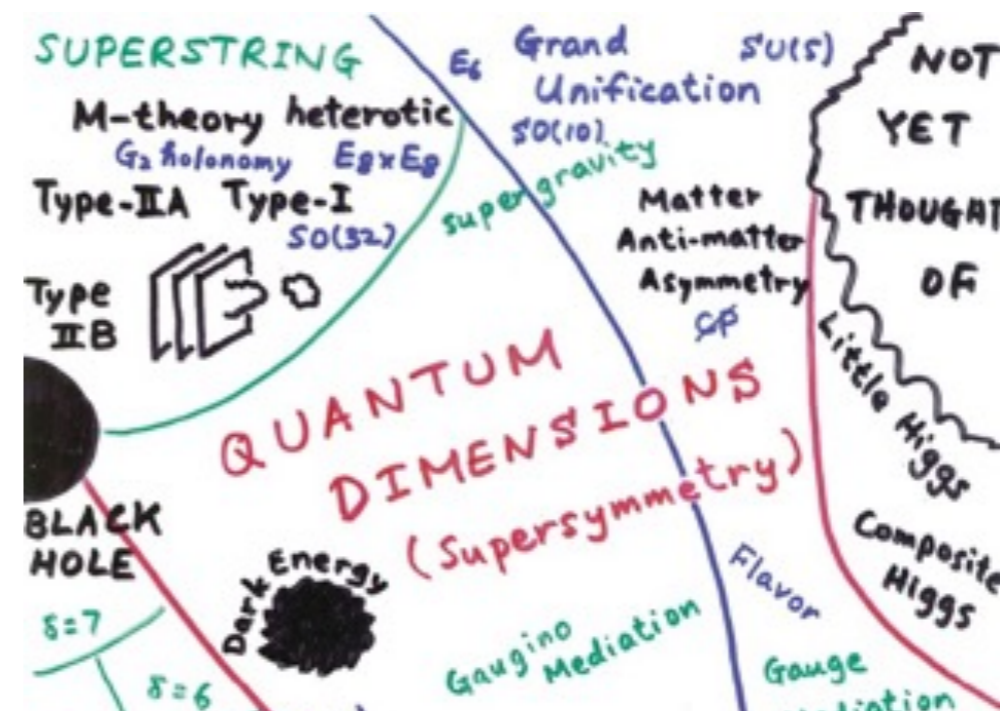 SUPERSTRING
M-theory heterotic
G₂ holonomy E₈×E₈
Type-IIA Type-I
SO(32)
Type
IIB
E₆
Grand
Unification
SU(5)
SO(10)
supergravity
Matter
Anti-matter
Asymmetry
CP
NOT
YET
THOUGHT
OF
Little Higgs
Composite
Higgs
QUANTUM
DIMENSIONS
(Supersymmetry)
BLACK
HOLE
Dark Energy
δ=7
δ=6
Flavor
Gaugino
Mediation
Gauge